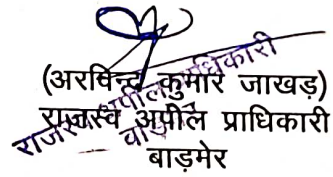 (अरविन्द कुमार जाखड़)
राजस्व अपील प्राधिकारी
बाड़मेर
राजस्व अपील अधिकारी